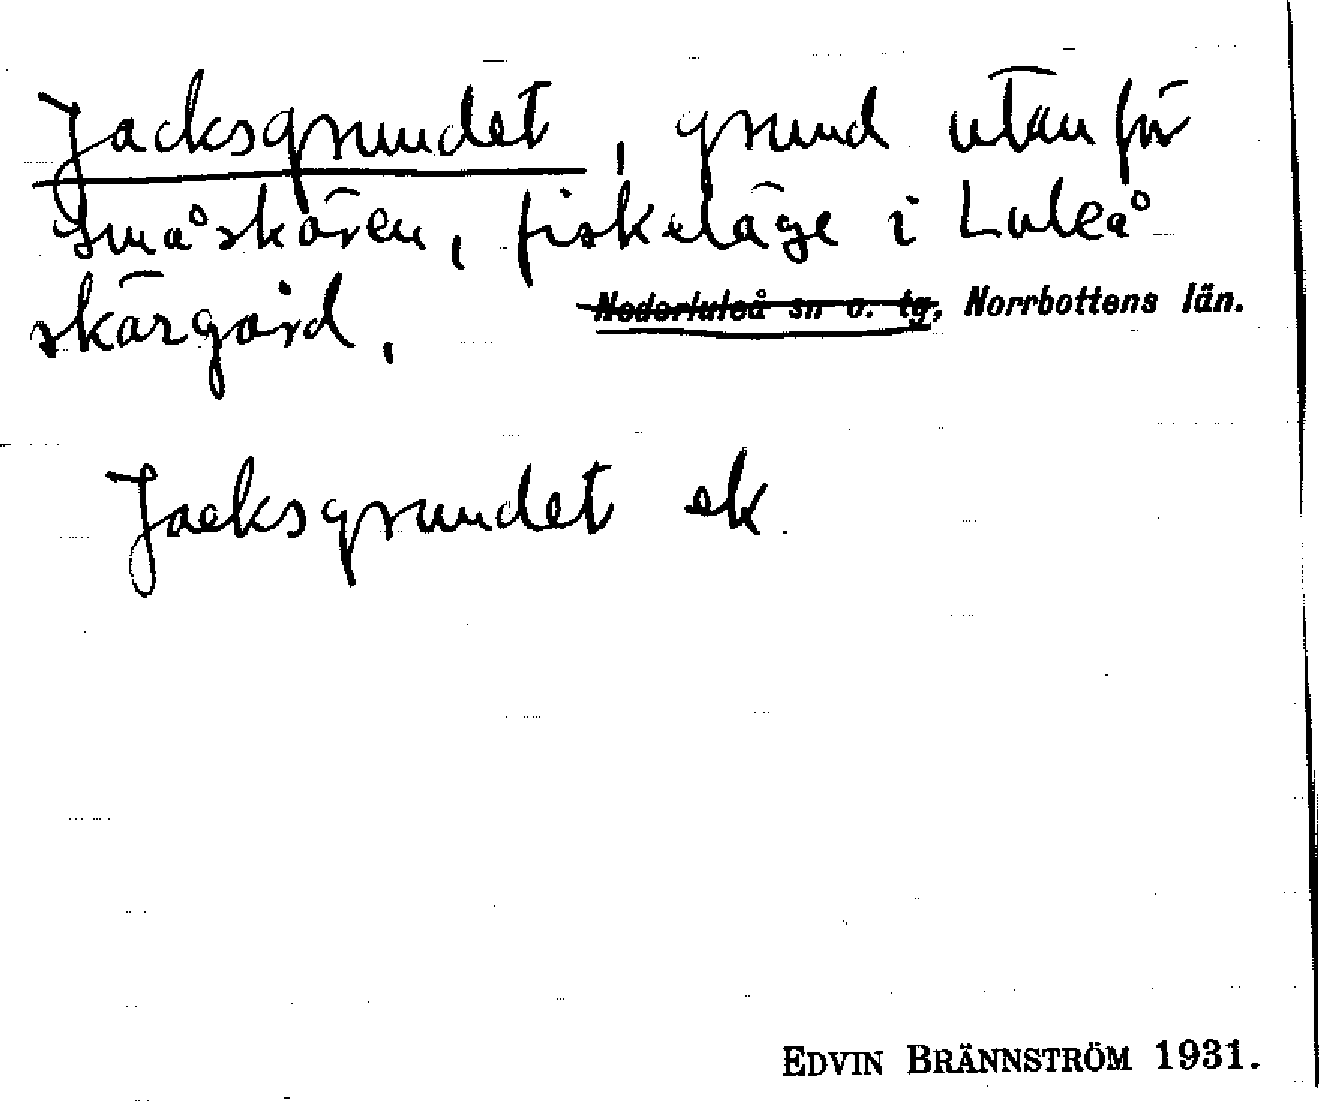 Jacksgrundet, grund utanför
Småskären, fiskeläge i Luleå
skärgård. Nederluleå sn o. tg, Norrbottens län.
Jacksgrundet ek.
EDVIN BRÄNNSTRÖM 1931.